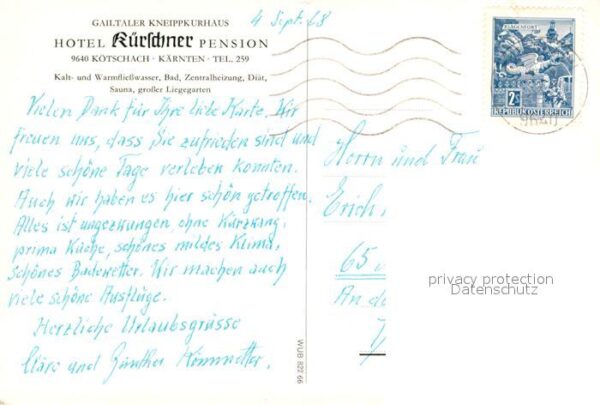 GAILTALER KNEIPPKURHAUS
HOTEL Kürschner PENSION
9640 KÖTSCHACH · KÄRNTEN · TEL. 259
Kalt- und Warmfließwasser, Bad, Zentralheizung, Diät,
Sauna, großer Liegegarten
4 Sept. 68
Vielen Dank für Ihre liebe Karte. Wir
freuen uns, dass Sie zufrieden sind und
viele schöne Tage verleben konnten.
Auch wir haben es hier schön getroffen.
Alles ist ungezwungen, ohne Kurzwang,
prima Küche, schönes mildes Klima,
schönes Badewetter. Wir machen auch
viele schöne Ausflüge.
Herzliche Urlaubsgrüsse
und Günther
WUB 822 66
KLAGENFURT
2S
REPUBLIK ÖSTERREICH
Herrn und Frau
Erich
65
An de
privacy protection
Datenschutz